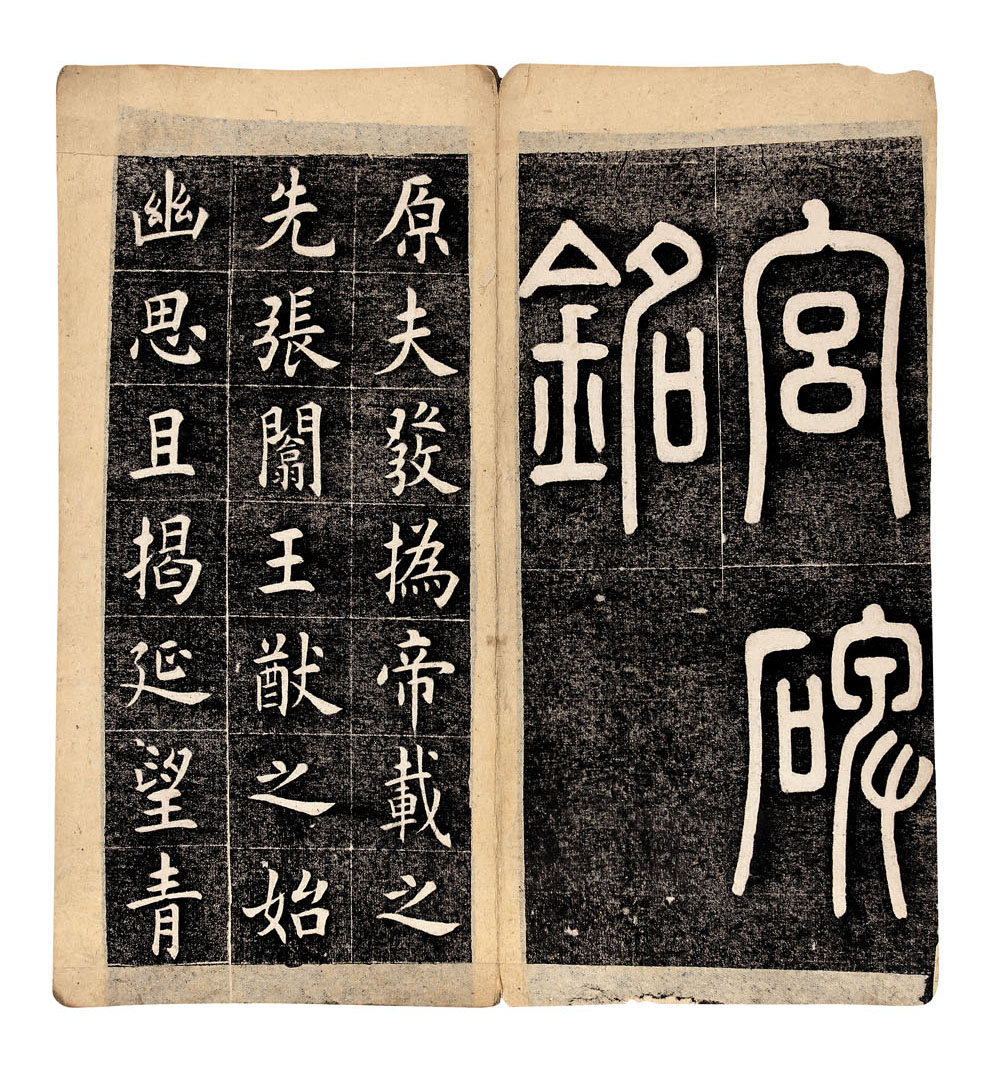 宮碑
銘
原夫發撝帝載之
先張闟王猷之始
幽思且揭延望青